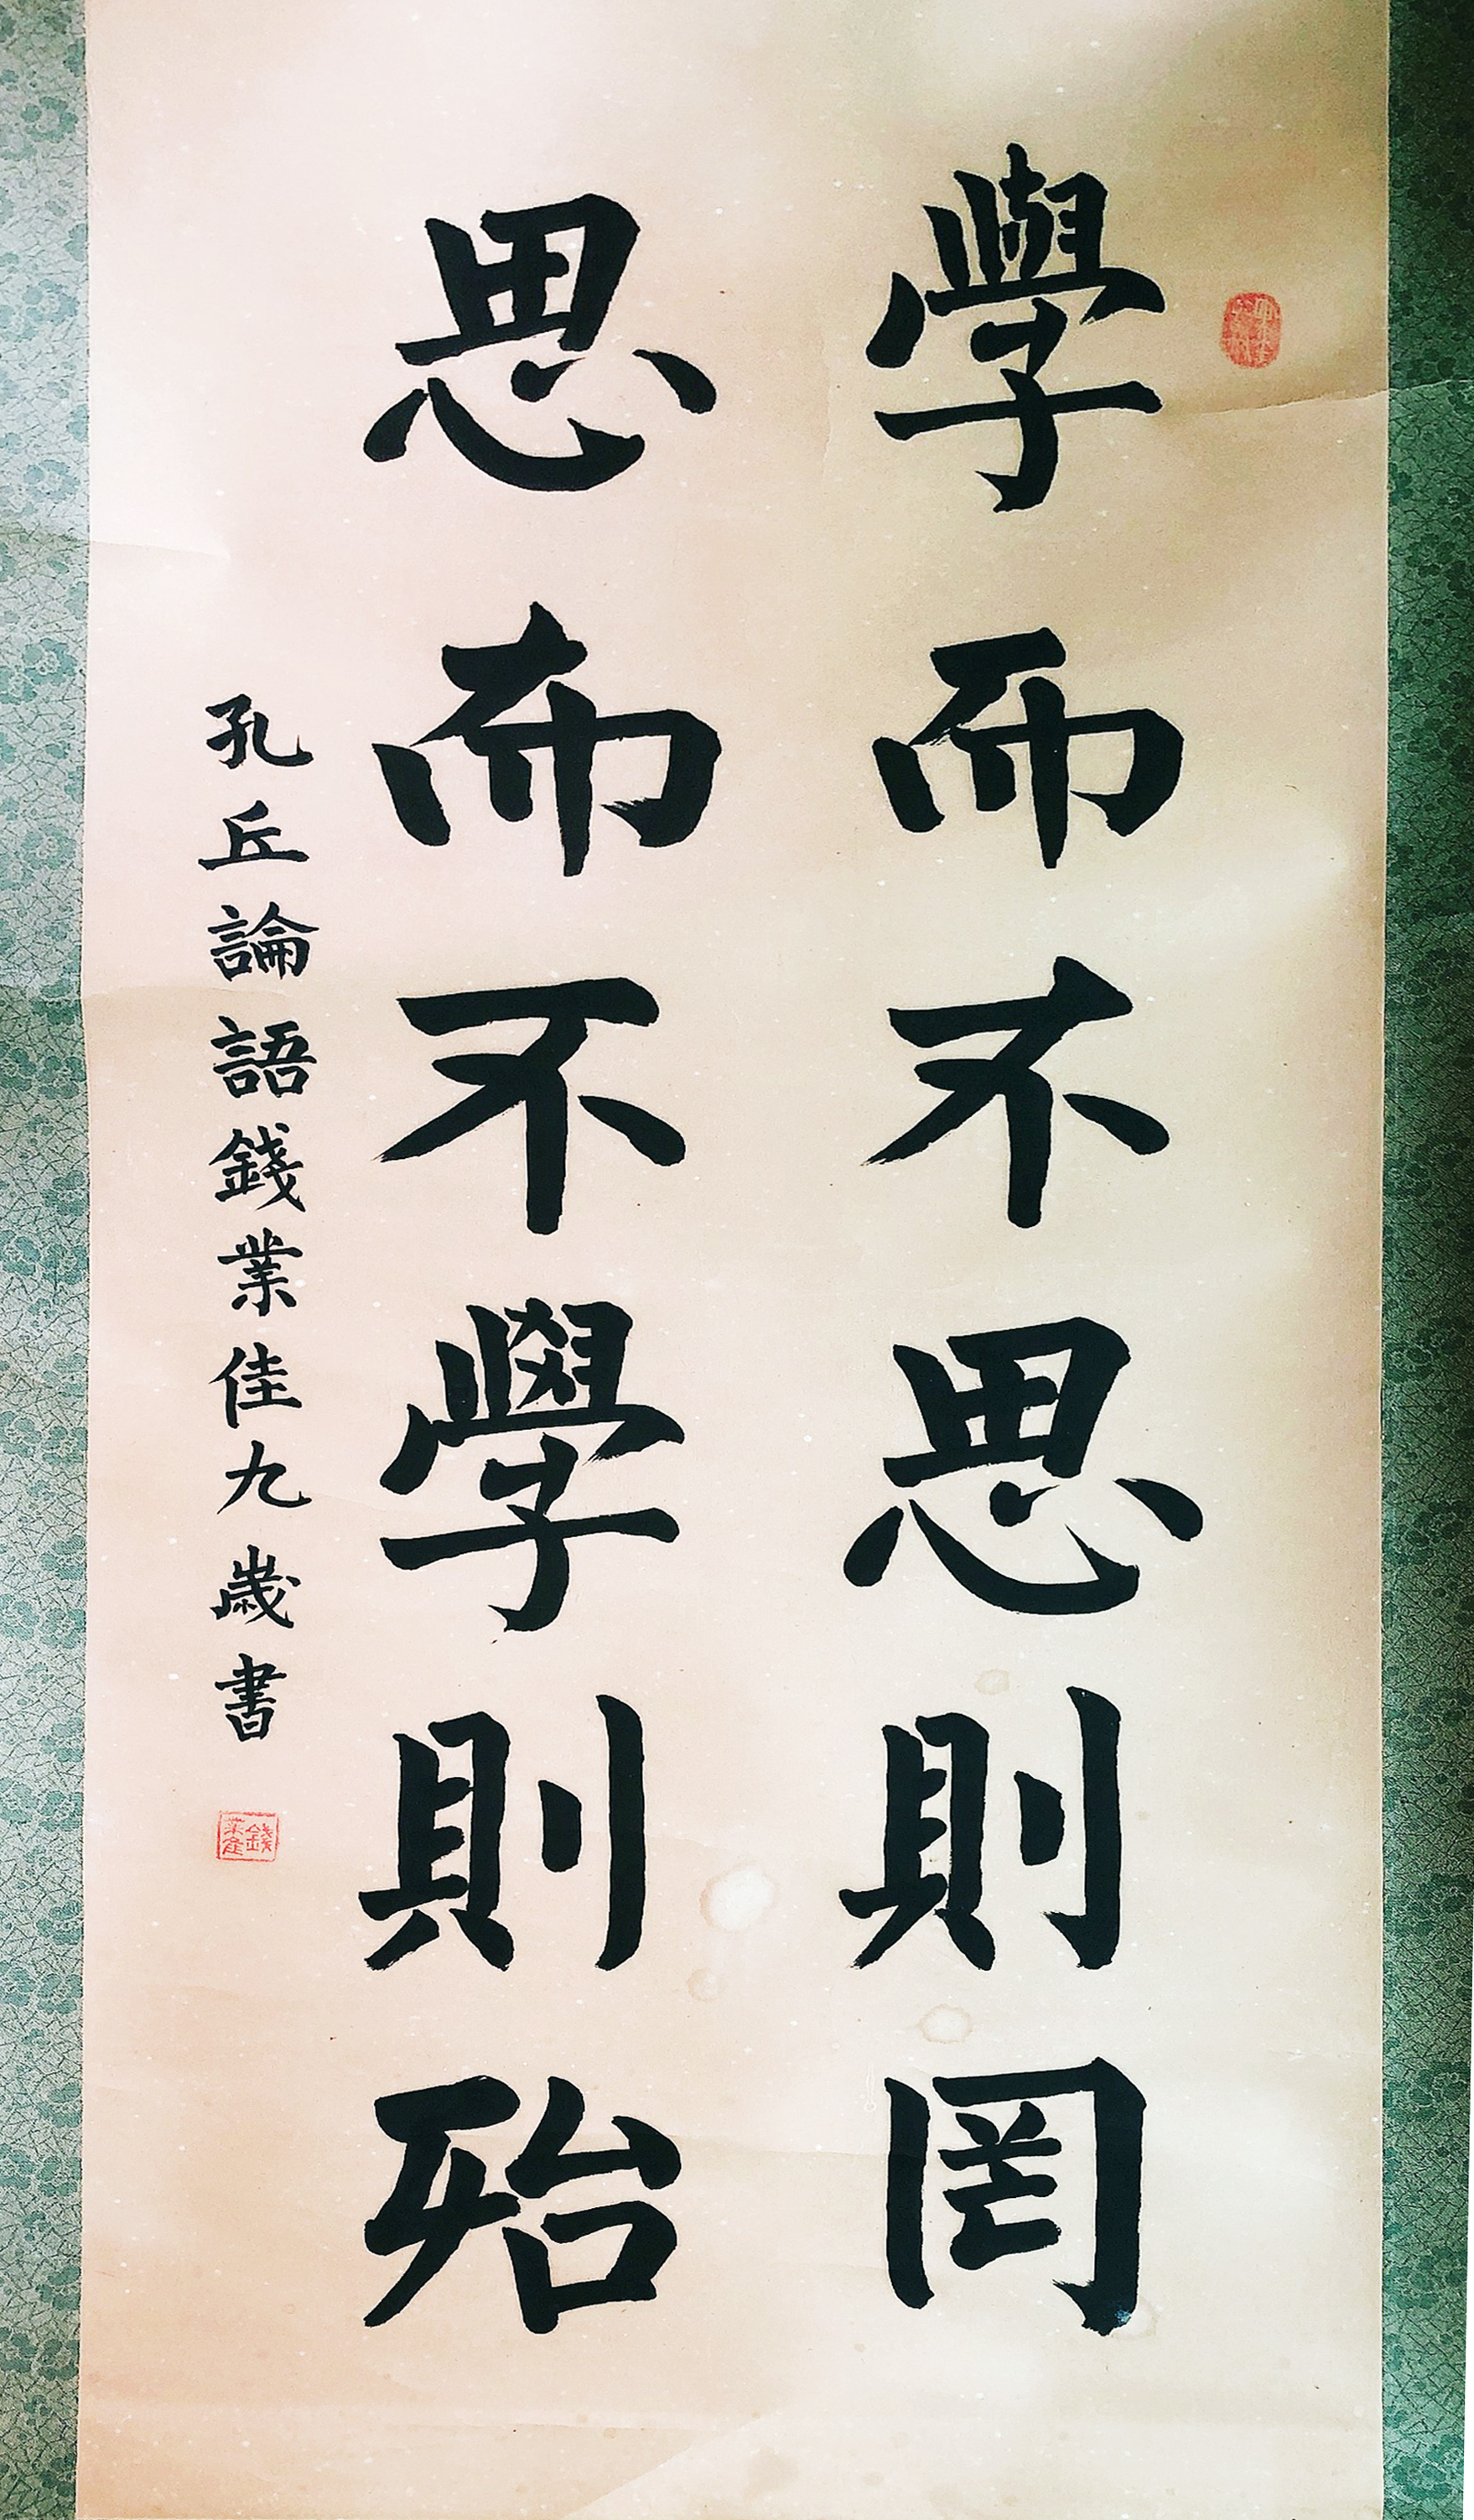 學而不思則罔
思而不學則殆
孔丘論語錢業佳九歲書
錢業佳